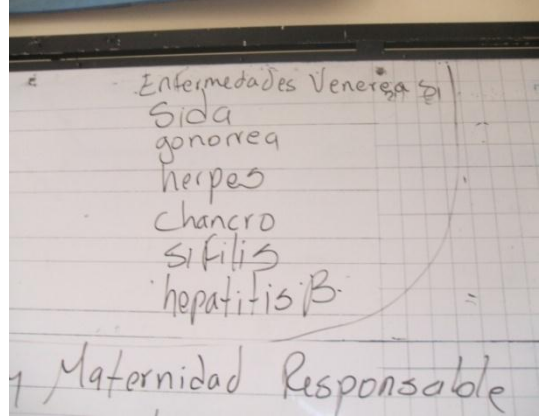 Enfermedades Venerea
Sida
gonorrea
herpes
Chancro
sifilis
hepatitis B.
y Maternidad Responsable